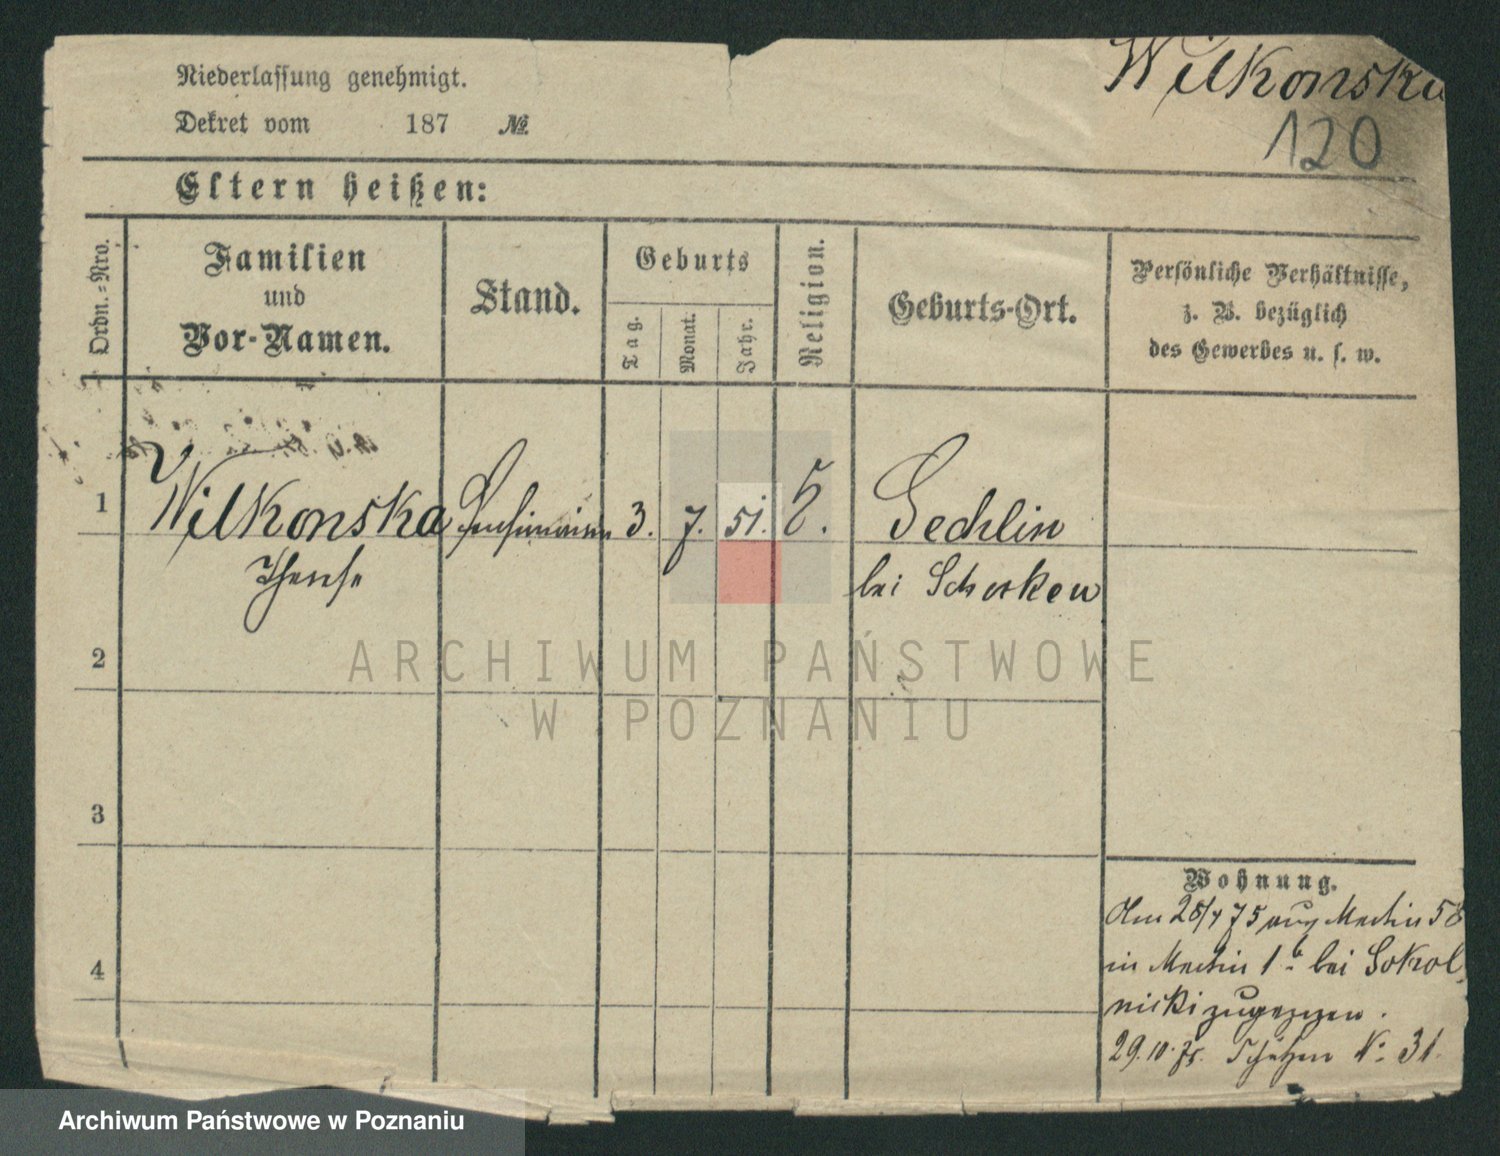 Wilkonska
120
Niederlassung genehmigt.
Dekret vom 187 №
Eltern heißen:
Ordn.-Nro.
Familien
und
Vor-Namen.
Stand.
Geburts
Tag.
Monat.
Jahr.
Religion.
Geburts-Ort.
Persönliche Verhältnisse,
z. B. bezüglich
des Gewerbes u. s. w.
1
Wilkonska
3. 7. 51.
Sechlin
bei Schocken
2
3
4
Wohnung.
Am 28/7 75 aus Martin 58
in Martin 1 b. bei Sokol
nicki zugezogen.
29.10.75. Schützen No. 31.
ARCHIWUM PAŃSTWOWE
W POZNANIU
Archiwum Państwowe w Poznaniu